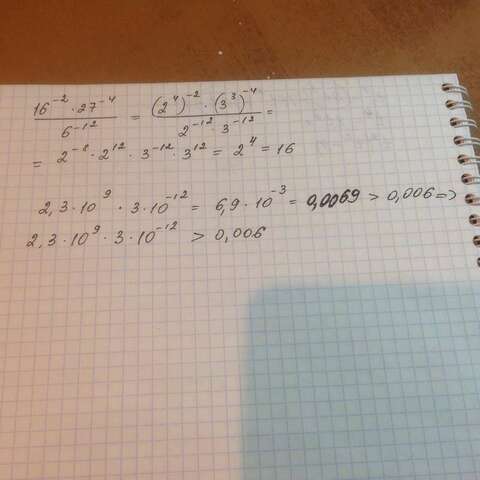 16^-2 · 27^-4 / 6^-12 = (2^4)^-2 · (3^3)^-4 / 2^-12 · 3^-12 =
= 2^-8 · 2^12 · 3^-12 · 3^12 = 2^4 = 16
2,3 · 10^9 · 3 · 10^-12 = 6,9 · 10^-3 = 0,0069 > 0,006 =>
2,3 · 10^9 · 3 · 10^-12 > 0,006